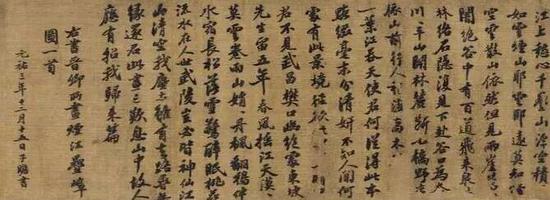 江上愁心千疊山浮空積翠
如雲煙山耶雲耶遠莫知煙
空雲散山依然但見兩崖蒼蒼
暗絕谷中有百道飛來泉縈
林絡石隱復見下赴谷口為奔
川川平山開林麓斷小橋野店
依山前行人稍度喬木外漁舟
一葉江吞天使君何從得此本
點綴毫末分清妍不知人間何
處有此境徑欲往
君不見武昌樊口幽絕處東坡
先生留五年春風搖江天漠漠
莫雲卷雨山娟娟丹楓翻鴉伴
水宿長松落雪驚醉眠桃花
流水在人世武陵豈必皆神仙江
山清空我塵土雖有去路尋無
緣還君此畫三歎息山中故人
應有招我歸來篇
右書晉卿所畫煙江疊嶂
圖一首
元祐三年十二月十五日子瞻書